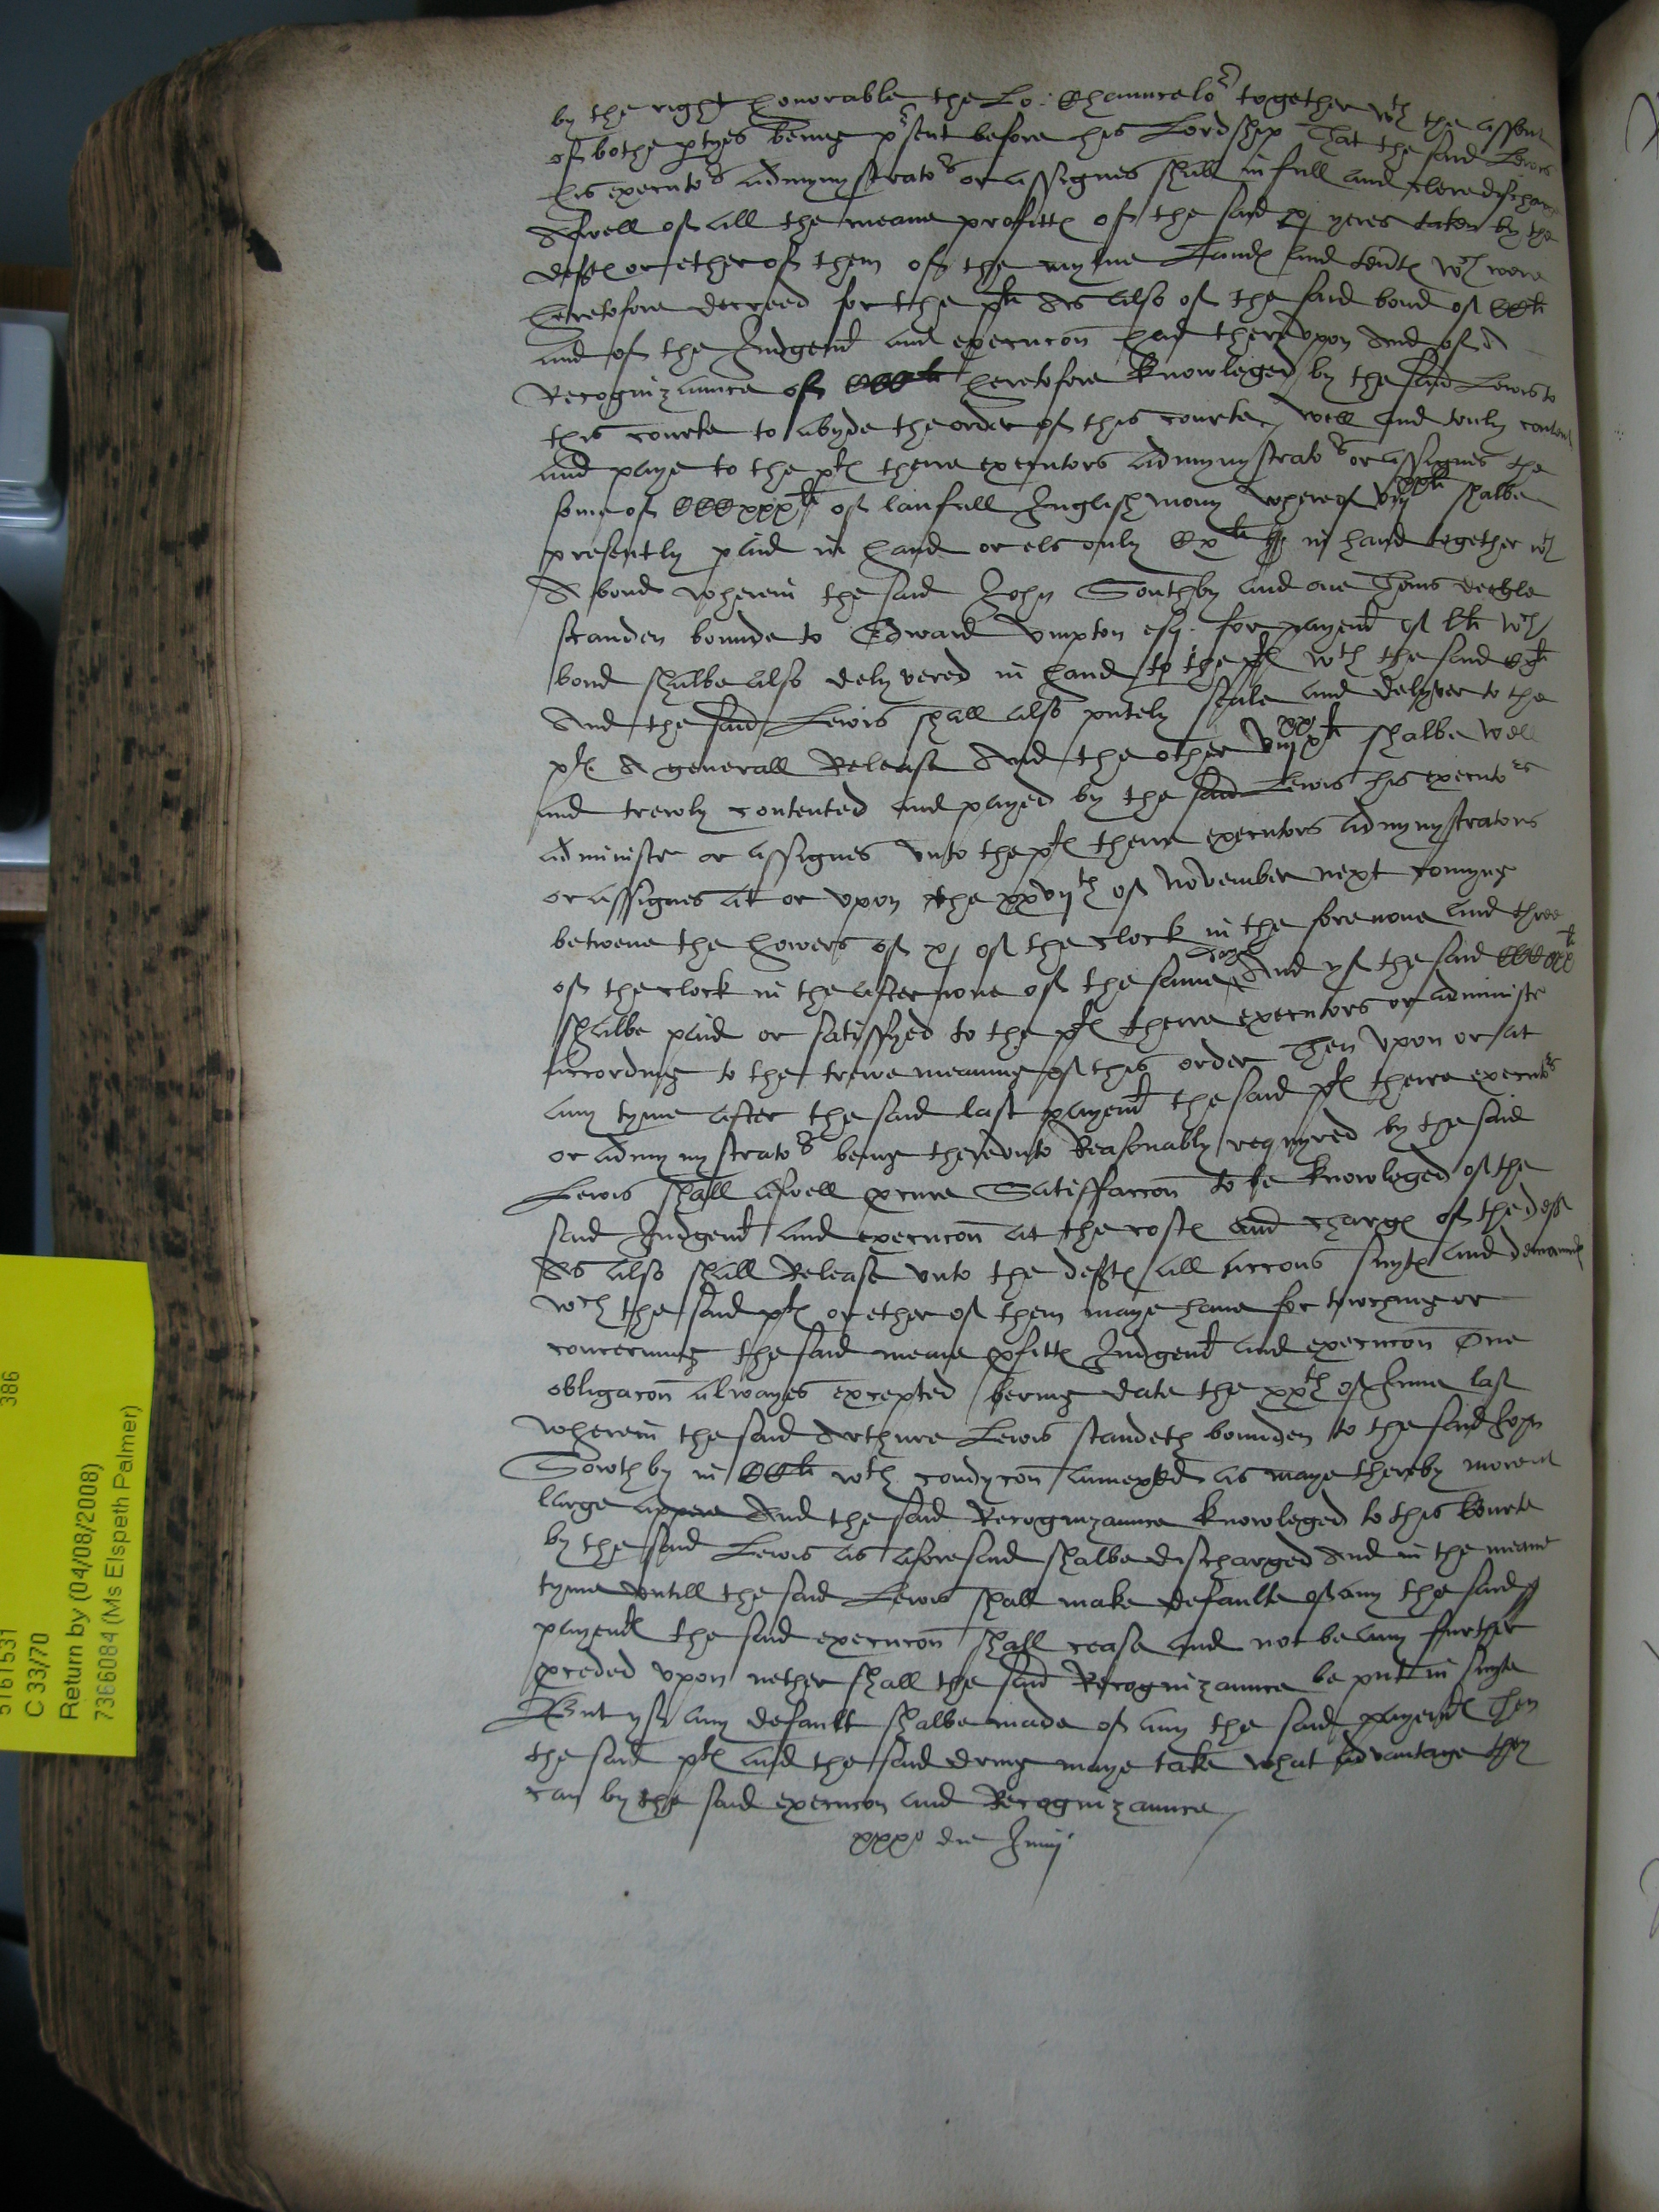 by the right honorable the Lo: Chauncelor together wth the assent
of bothe ptyes being psent before his Lordship That the said Lewis
his executors admynystrators or assignes shall in full and clere discharge
aswell of all the meane profitte of the said xj yeres taken by the
defte or ether of them of the myme Lande and tente wch were
heretofore decreed for the plt As also of the said bond of CCli
and of the Judgemt and execucon had thereupon And of a
Recognizaunce of CCCli heretofore knowleged by the said Lewis to
this courte to abyde the order of this courte, well and truly content
and paye to the plte theire executors admynystrators or assignes the
some of CCCxxxli of laufull Inglish mony whereof viijxxli shalbe
presently paid in hand or els only Cxli in hand together wth
A bond wherein the said John Southby and one Thoms
standen bounde to Edward Umpton esq. for paymt of lli wch
bond shalbe also delyvered in hand to the plte wth the said Cxli
And the said Lewis shall also pntely seale and delyver to the
plte A generall Release And the other viijxxxli shalbe well
and trewly contented and payed by the said Lewis his executors
administr or assignes unto the plte theire executors admynystrators
or assignes at or upon the xxvijth of November next comyng
betwene the howers of xj of the clock in the forenone and three
of the clock in the afternone of the same daye And yf the said CCCxxxli
shalbe paid or satisfyed to the plte theire executors or administr
According to the trewe meaning of this order Then upon or at
any tyme after the said last paymt the said plte theire executors
or admynystrators being thereunto Reasonably requyred by the said
Lewis shall aswell pcure Satisfaccon to be knowleged of the
said Judgemt and execucon at the coste and charge of the deft
As also shall Release unto the defte all accons suyte and demaunde
wch the said plte or ether of them maye have for towching or
concerning the said meane pfitte Judgemt and execucon One
obligacon alwayes excepted bering date the xxth of June last
wherein the said Arthure Lewis standeth bounden to the said John
Sowthby in CCli wth condycon annexed as maye thereby more at
large appere And the said Recognizaunce knowleged to this Courte
by the said Lewis as aforesaid shalbe discharged And in the meane
tyme untill the said Lewis shall make defaulte of any the said
paymte the said execucon shall cease and not be any further
pceded upon nether shall the said Recognizaunce be put in suyte
But yf any default shalbe made of any the said paymte Then
the said plte and the said maye take what advantage they
can by the said execucon and Recognizaunce
xxxo die Junij
5161531
386
C 33/70
Return by (04/08/2008)
7366084 (Ms Elspeth Palmer)